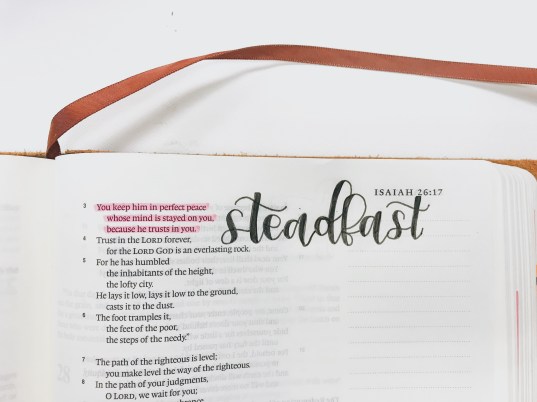 ISAIAH 26:17
steadfast
3 You keep him in perfect peace
whose mind is stayed on you,
because he trusts in you.
4 Trust in the LORD forever,
for the LORD GOD is an everlasting rock.
5 For he has humbled
the inhabitants of the height,
the lofty city.
He lays it low, lays it low to the ground,
casts it to the dust.
6 The foot tramples it,
the feet of the poor,
the steps of the needy."
7 The path of the righteous is level;
you make level the way of the righteous.
8 In the path of your judgments,
O LORD, we wait for you;